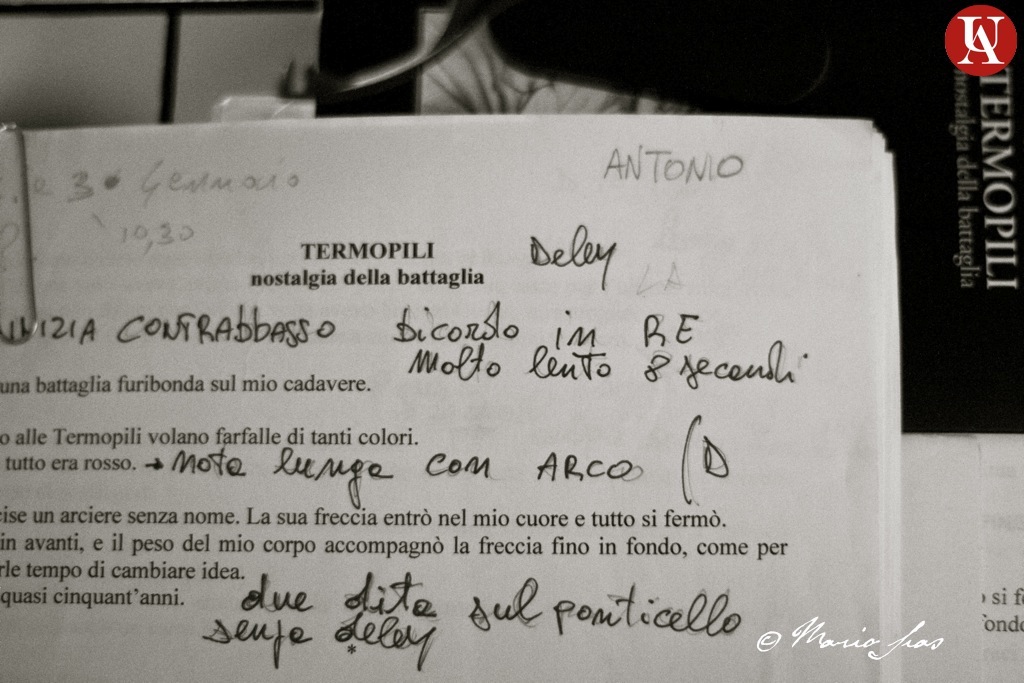 UA
TERMOPILI
nostalgia della battaglia
3 Gennaio
ANTONIO
10,30
TERMOPILI
nostalgia della battaglia
Deley
LA
INIZIA CONTRABBASSO bicordo in RE
Molto lento 8 secondi
una battaglia furibonda sul mio cadavere.
o alle Termopili volano farfalle di tanti colori.
tutto era rosso. → Nota lunga con ARCO (D
cise un arciere senza nome. La sua freccia entrò nel mio cuore e tutto si fermò.
in avanti, e il peso del mio corpo accompagnò la freccia fino in fondo, come per
rle tempo di cambiare idea.
quasi cinquant'anni.
due dita sul ponticello
senza deley
*
si f
ond
© Mario